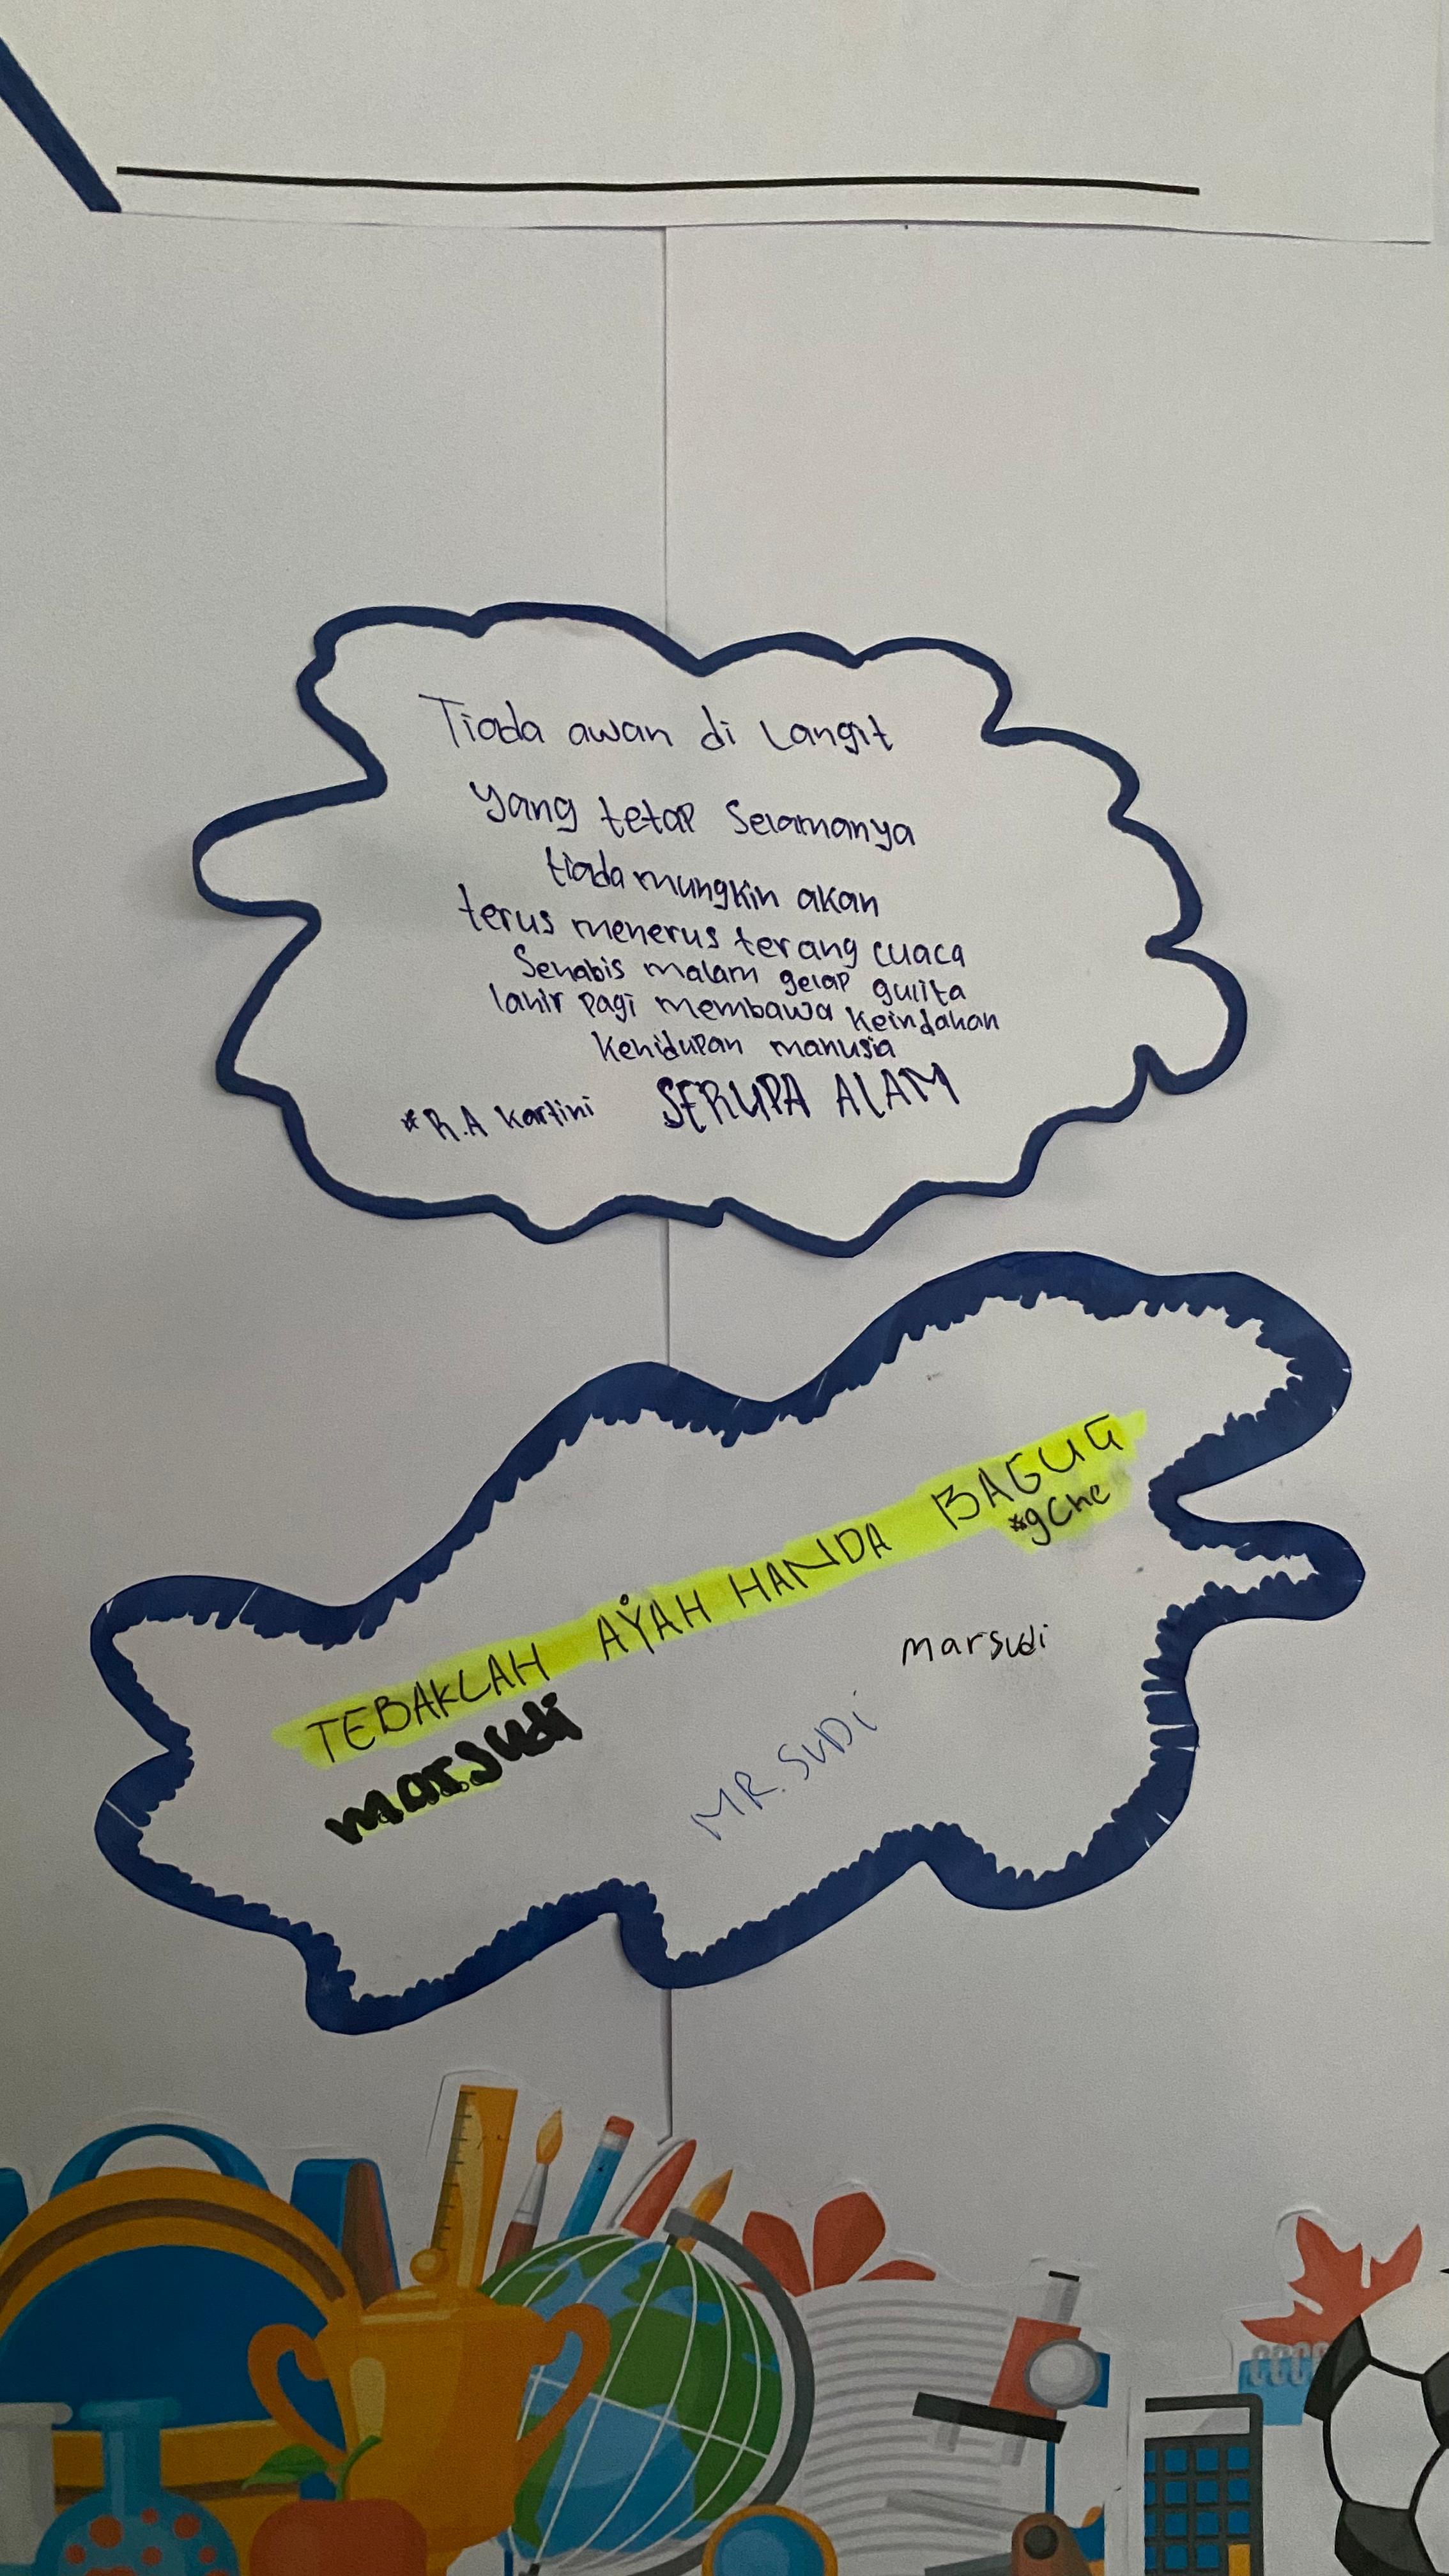 Tiada awan di Langit
yang tetap Selamanya
tiada mungkin akan
terus menerus terang cuaca
Sehabis malam gelap gulita
lahir pagi membawa keindahan
kehidupan manusia
*R.A Kartini SERUPA ALAM
TEBAKLAH AYAH HANDA BAGUG
*gche
marsudi
marsudi
MR. SUDi